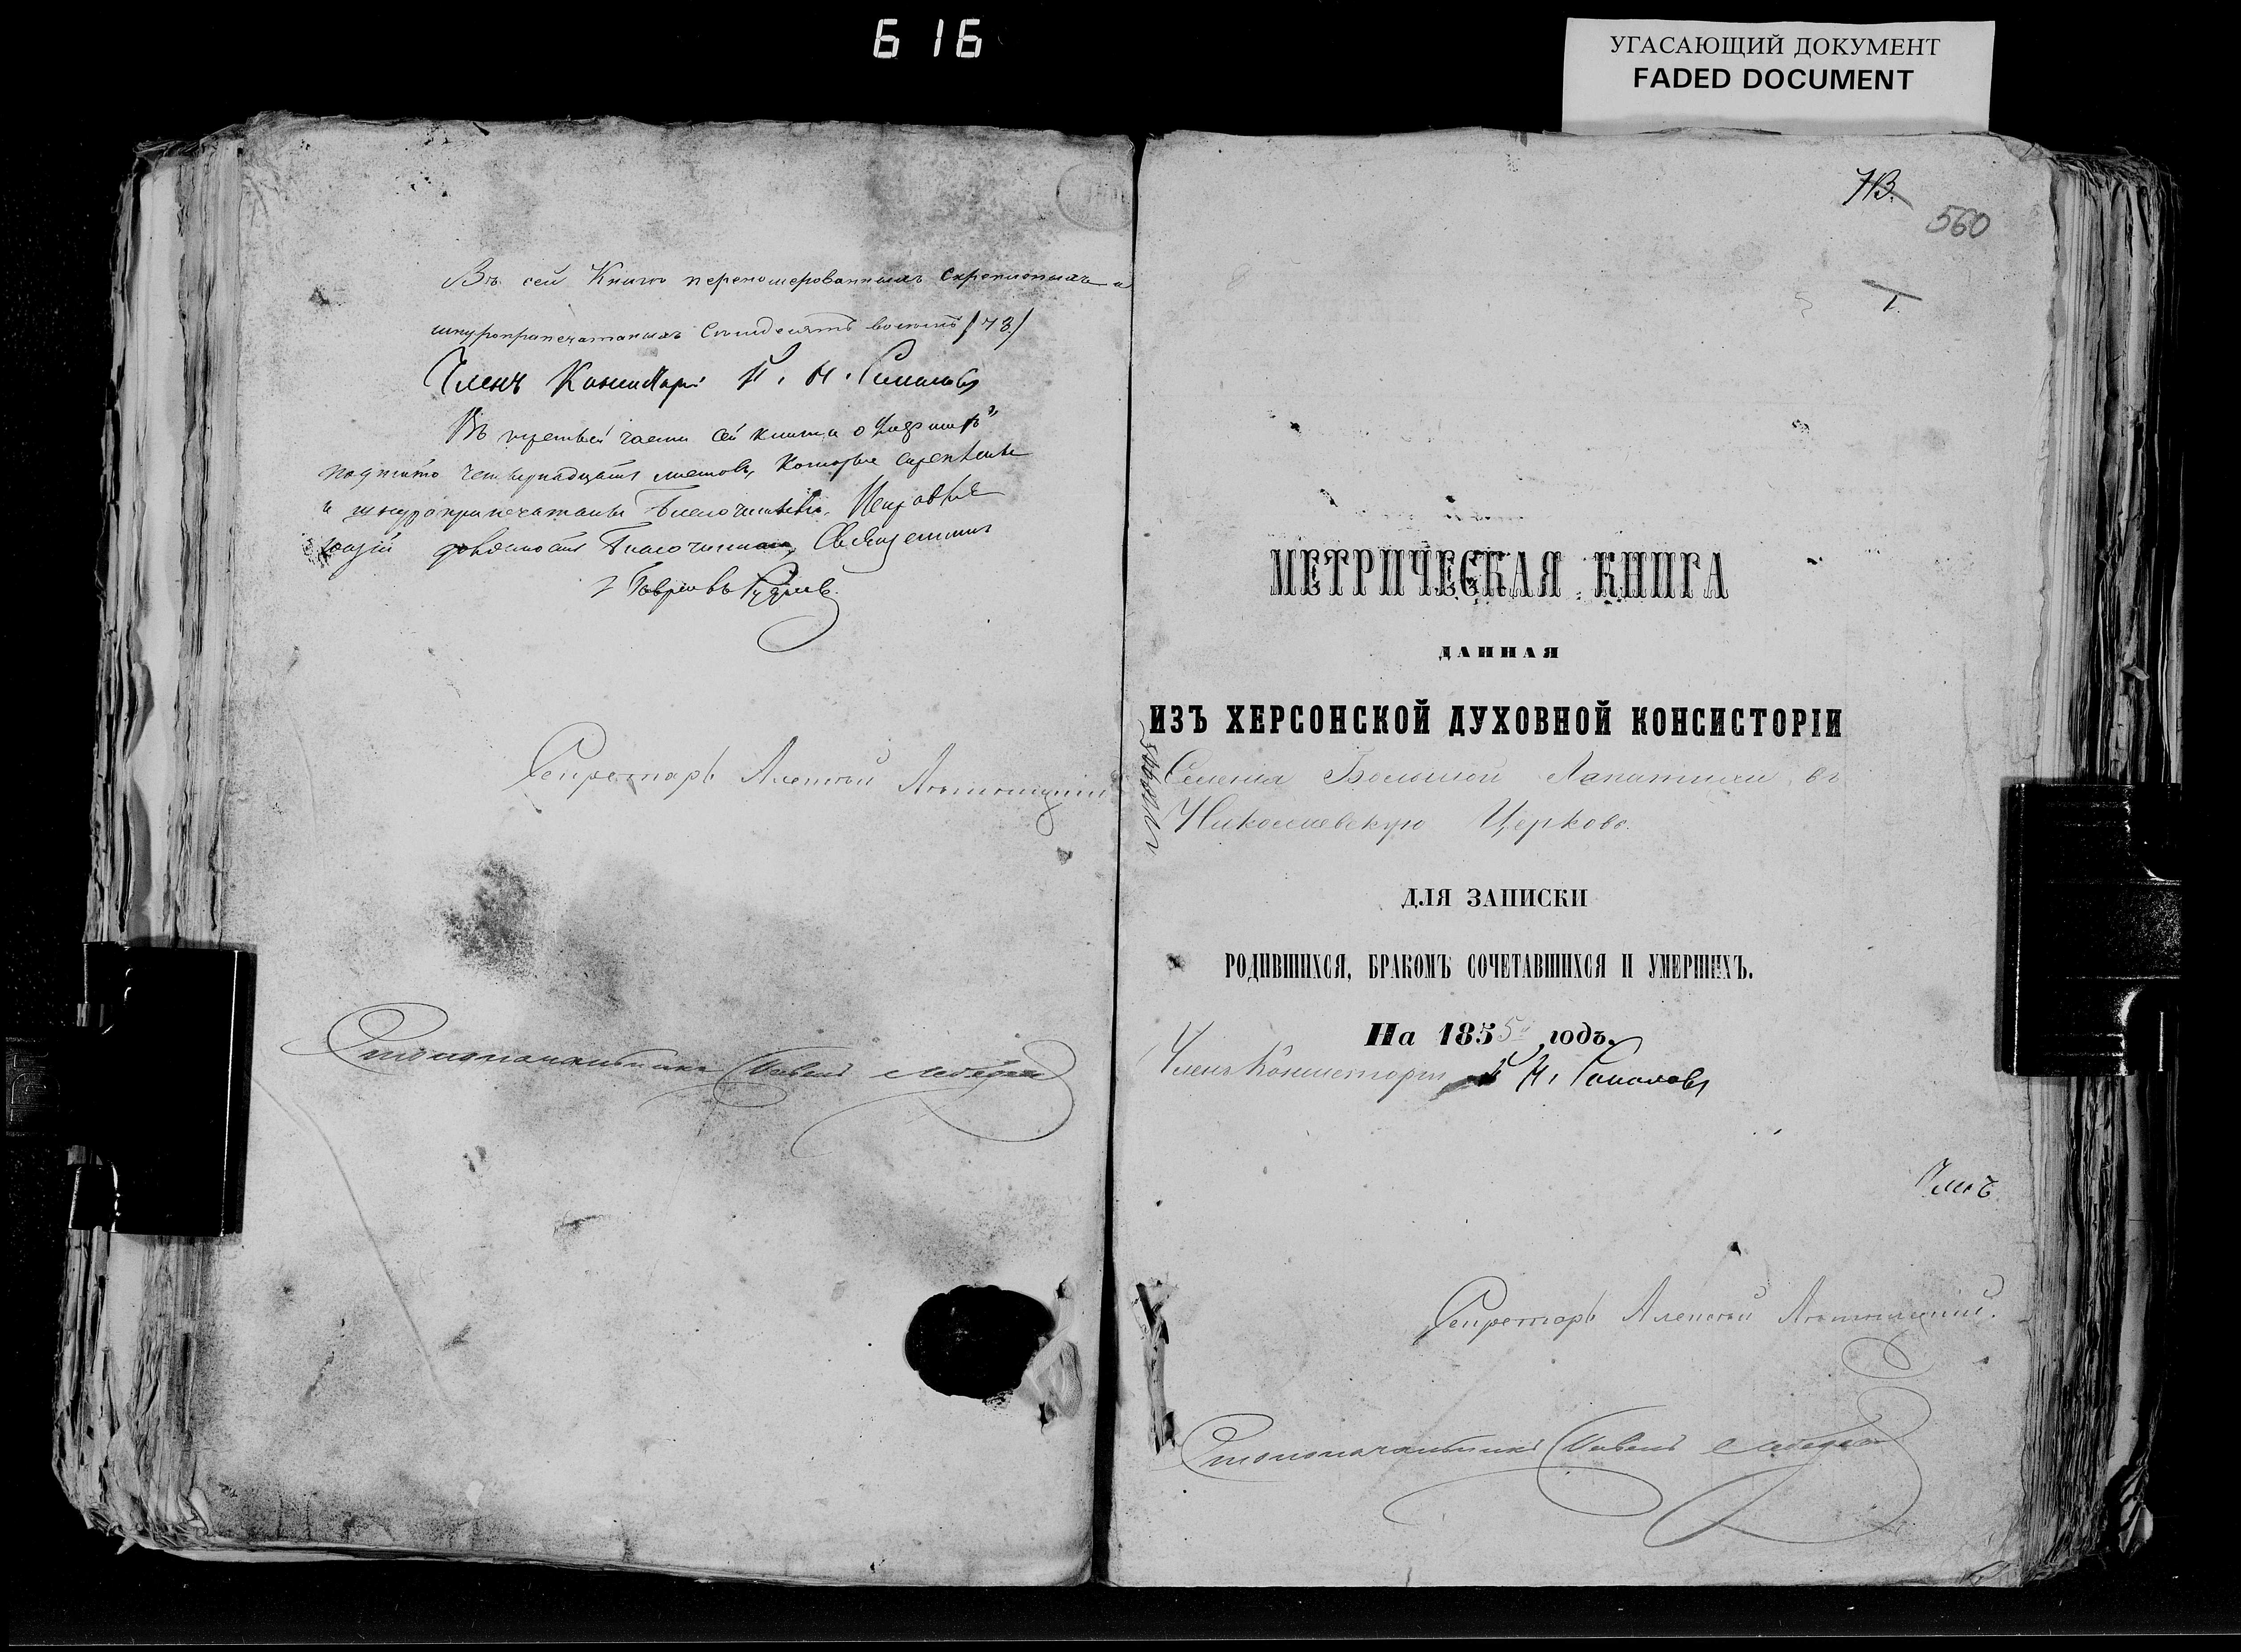 616
УГАСАЮЩИЙ ДОКУМЕНТ
FADED DOCUMENT
Въ сей Книгѣ перенумерованныхъ скрепленныхъ и
шнуропрапечатаныхъ Семдесятъ восемь /78/
Членъ Консисторіи П. И. Соколовъ
Въ третьей части сей книги о
подшито четырнадцать листовъ, которые скреплены
и шнуропрапечатаны Благочиннымъ. Исправляю
ющій должность Благочиннаго, Священникъ
Секретарь Алексѣй
Столоначальникъ Павелъ
78.
560
1.
МЕТРИЧЕСКАЯ КНИГА
ДАННАЯ
ИЗЪ ХЕРСОНСКОЙ ДУХОВНОЙ КОНСИСТОРІИ
Селенія Большой Лапатихи въ
Николаевскую Церковь.
ДЛЯ ЗАПИСКИ
РОДИВШИХСЯ, БРАКОМЪ СОЧЕТАВШИХСЯ И УМЕРШИХЪ.
На 1855 годъ.
Членъ Консисторіи П. И. Соколовъ
Членъ
Секретарь Алексѣй
Столоначальникъ Павелъ